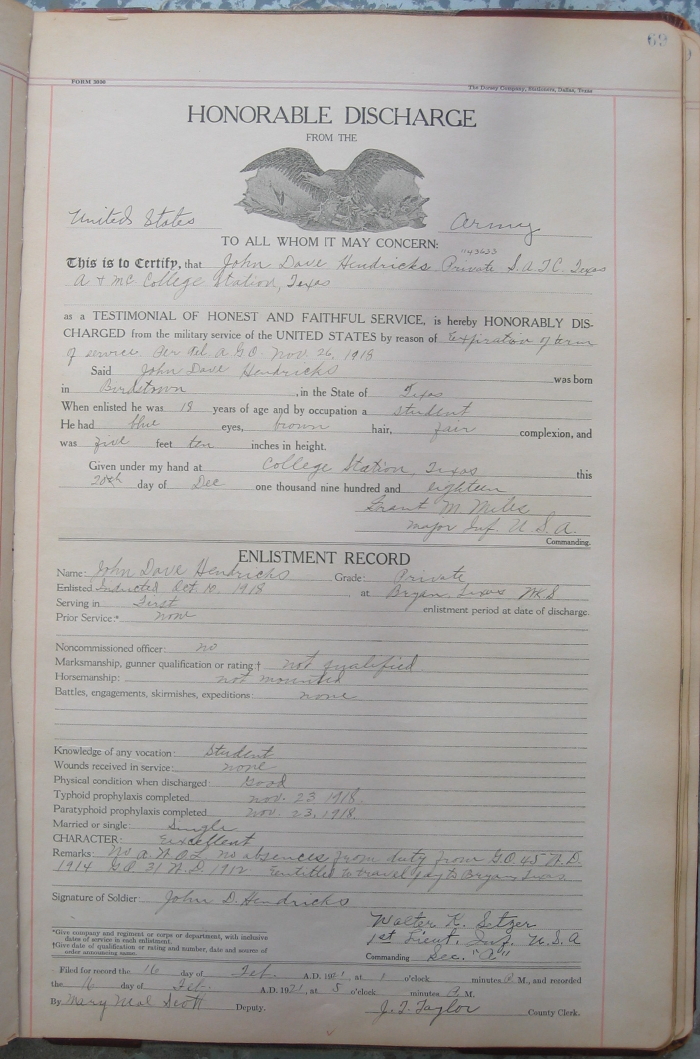 69
FORM 3036
The Dorsey Company, Stationers, Dallas, Texas
HONORABLE DISCHARGE
FROM THE
United States Army
TO ALL WHOM IT MAY CONCERN:
This is to Certify, that John Dave Hendricks Private S.A.T.C. Texas
A + MC College Station, Texas
as a TESTIMONIAL OF HONEST AND FAITHFUL SERVICE, is hereby HONORABLY DIS-
CHARGED from the military service of the UNITED STATES by reason of Expiration of term
of service Per tel. A.G.O. Nov. 26, 1918
Said John Dave Hendricks was born
in , in the State of Texas
When enlisted he was 18 years of age and by occupation a student
He had blue eyes, brown hair, fair complexion, and
was five feet ten inches in height.
Given under my hand at College Station, Texas this
20th day of Dec one thousand nine hundred and eighteen
Grant M Miles
Major Inf. U.S.A.
Commanding.
ENLISTMENT RECORD
Name: John Dave Hendricks Grade: Private
Enlisted Inducted Oct. 10, 1918 at Bryan, Texas
Serving in First enlistment period at date of discharge.
Prior Service:* none
Noncommissioned officer: no
Marksmanship, gunner qualification or rating† not qualified
Horsemanship: not mounted
Battles, engagements, skirmishes, expeditions: none
Knowledge of any vocation: Student
Wounds received in service: none
Physical condition when discharged: Good
Typhoid prophylaxis completed nov. 23 1918.
Paratyphoid prophylaxis completed nov. 23, 1918.
Married or single: Single
CHARACTER: Excellent
Remarks: No A.W.O.L. no absences from duty from G.O. 45 W.D.
1914 G.O. 31 W.D. 1912 Entitled to travel pay to Bryan, Texas
Signature of Soldier John D. Hendricks
Walter K. Setzer
1st Lieut. Inf. U.S.A
Commanding Sec. "A"
*Give company and regiment or corps or department, with inclusive
dates of service in each enlistment.
†Give date of qualification or rating and number, date and source of
order announcing same.
Filed for record the 16 day of Feb. A.D. 1921, at 1 o'clock minutes P. M., and recorded
the 16 day of Feb. A.D. 1921, at 5 o'clock minutes P. M.
By Mary Mal Scott Deputy. J. T. Taylor County Clerk.